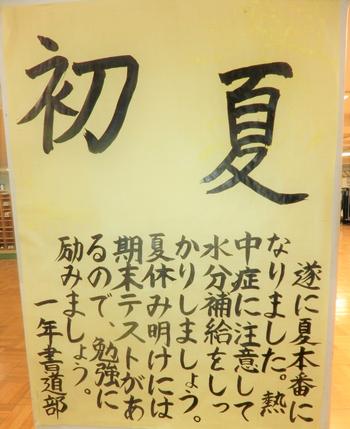 初夏
遂に夏本番に
なりました。熱
中症に注意して
水分補給をしっ
かりしましょう。
夏休み明けには
期末テストがあ
るので、勉強に
励みましょう。
一年書道部